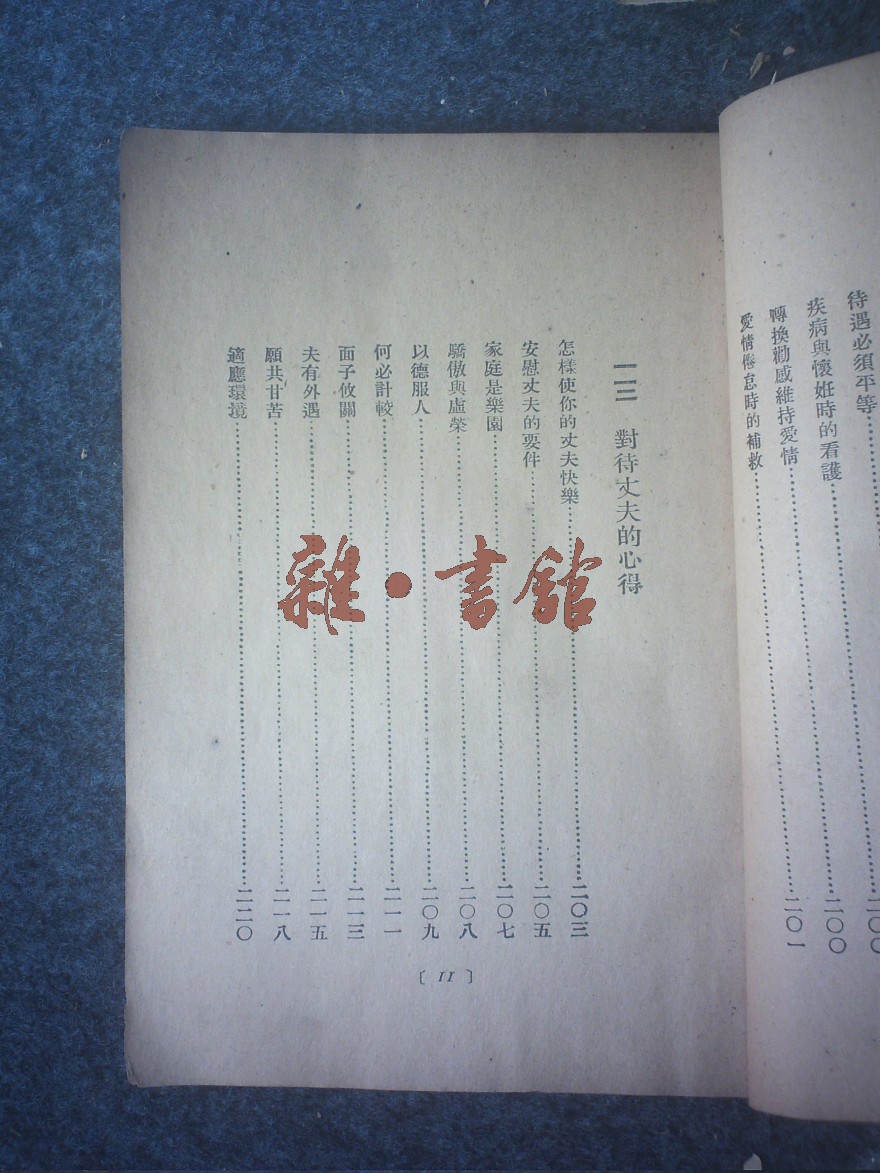 待遇必須平等……二〇〇
疾病與懷妊時的看護……二〇〇
轉換勸感維持愛情……二〇一
愛情倦怠時的補救……
一三 對待丈夫的心得
怎樣使你的丈夫快樂……二〇三
安慰丈夫的要件……二〇五
家庭是樂園……二〇七
驕傲與虛榮……二〇八
以德服人……二〇九
何必計較……二一一
面子攸關……二一三
夫有外遇……二一五
願共甘苦……二一八
適應環境……二二〇
〔 II 〕
雜·書館